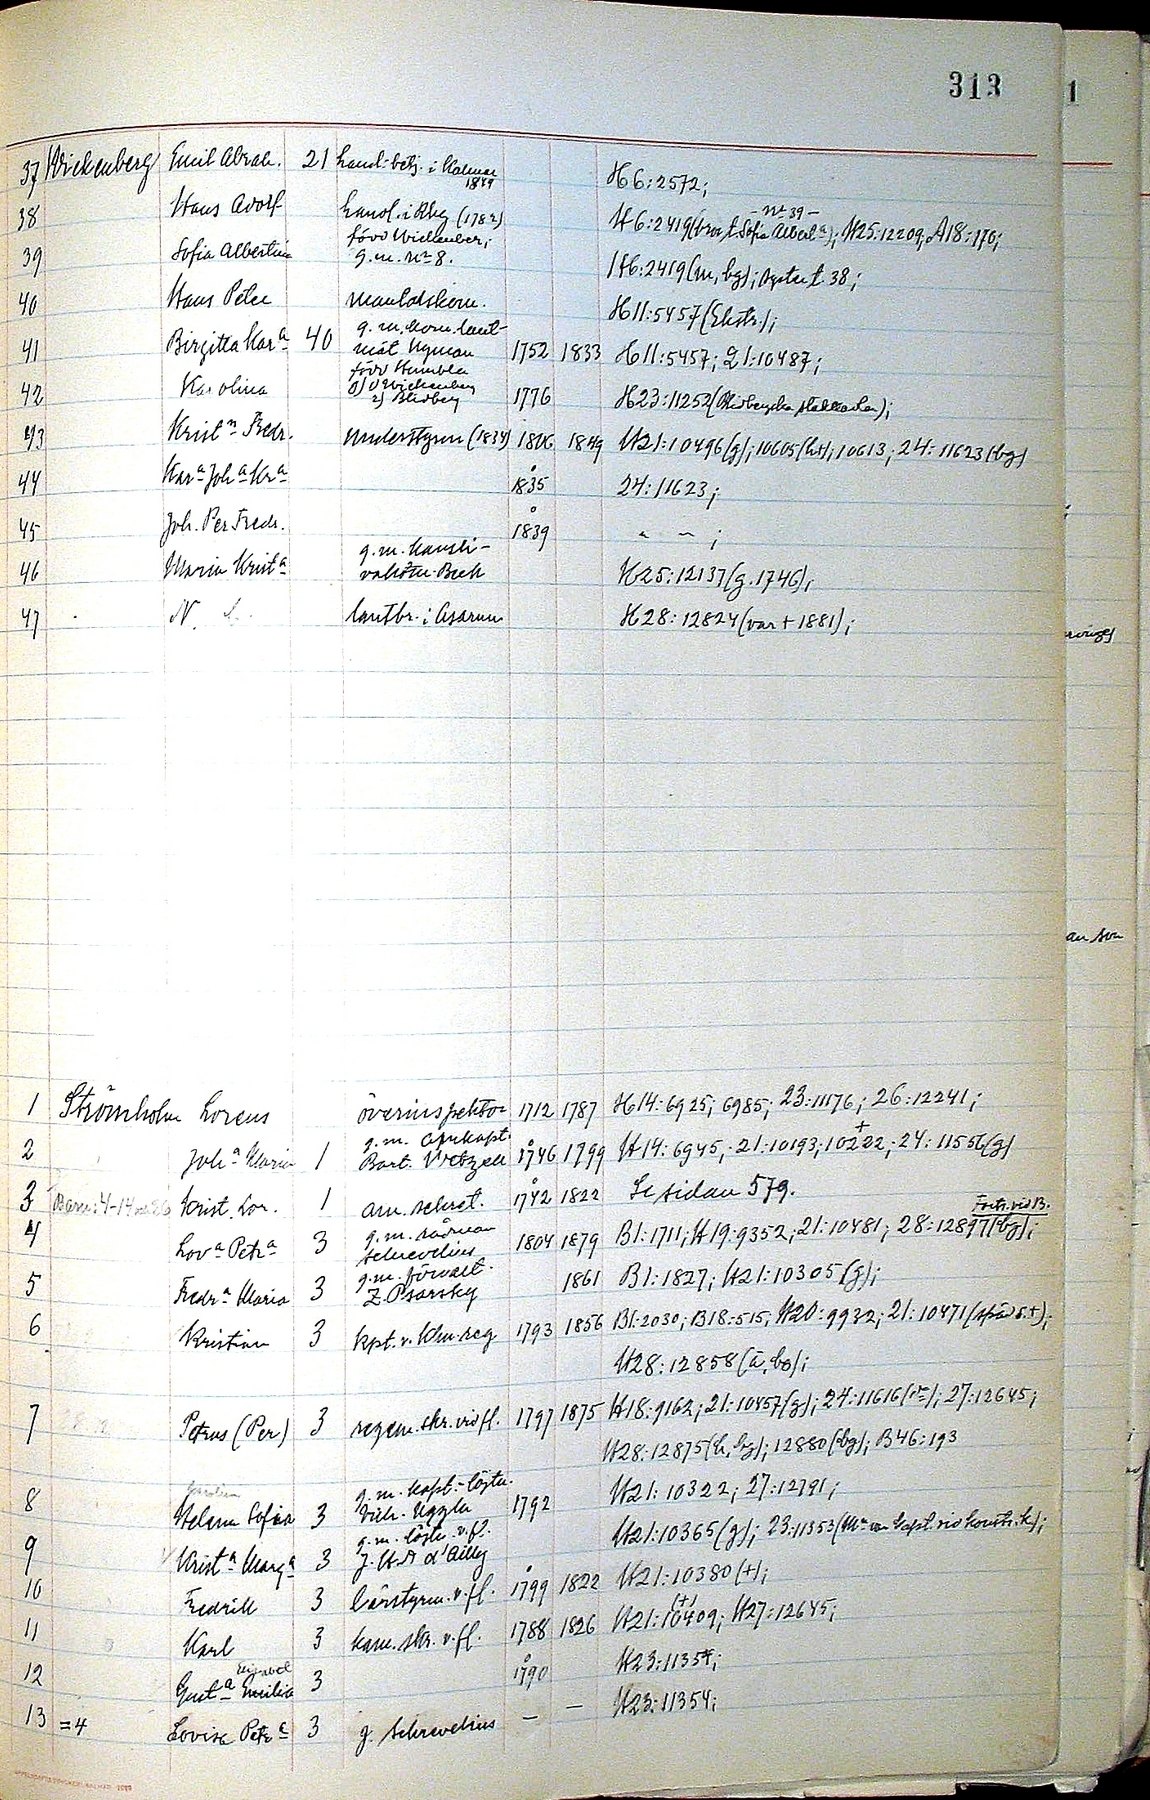 313
1
37 Wickenberg Emil Abrah. 21 hand-betj. i Kalmar 1849 H6:2572;
38 Hans Adolf handl. i Rby (1782) H6:2419 -nr 39- H25:12209; A18:170;
39 Sofia Albertina född Wickenber; g.m. nr 8. H6:2419(m, bg); syster t. 38;
40 Hans Peter H11:5457(Ekstr.);
41 Birgitta Kar a 40 g.m. kom. lant- mät Nyman 1752 1833 H11:5457; 21:10487;
42 Karolina född Humbla 1) v Wickenberg 2) Blidberg 1776 H23:11252
43 Krist n Fredr. understyrm (1834) 1806 1849 H21:10496(g); 10605; 10613; 24:11623(bg)
44 Kar a Joh a Kr a 1835 24:11623;
45 Joh. Per Fredr. 1839 " " ;
46 Maria Krist a g.m. kansli- vaktm. Beck H25:12137(g.1746);
47 N. lantbr. i Asarum H28:12824(var + 1881);
an son
1 Strömholm Lorens överinspektor 1712 1787 H14:6925; 6985; 23:11176; 26:12241;
2 Joh a Maria 1 g.m. Bart. Wetzell 1746 1799 H14:6945; 21:10193; 10222 +; 24:11556(g)
3 Barn: 4-14 Krist. Lor. 1 am. sekret. 1742 1822 Se sidan 579.
4 Lov a Petr a 3 g.m. rådman Schrevelius 1804 1879 B1:1711; H19:9352; 21:10481; 28:12897(bg); Forts. vid B.
5 Fredr a Maria 3 g.m. förvalt. Z. Psarsky 1861 B1:1827; H21:10305(g);
6 Kristian 3 kpt. v. Klm. reg 1793 1856 B1:2030; B18:515; H20:9932; 21:10471
H28:12858(ä, bg);
7 Petrus (Per) 3 regem. skr. vid fl. 1797 1875 H18:9162; 21:10457(g); 24:11616; 27:12645;
H28:12875; 12880(bg); B46:193
8 Helena Sofia 3 g.m. kapt.-löjtn. Vilh. Uggla 1792 H21:10322; 27:12791;
9 Krist a Marg a 3 g.m. löjtn. v. fl. d'Ailly H21:10365(g); 23:11353
10 Fredrik 3 lärstyrm. v. fl. 1799 1822 H21:10380(+);
11 Karl 3 kam. skr. v. fl. 1788 1826 H21:10409 (+); H27:12645;
12 Gust a Elisabet Emilia 3 1790 H23:11354;
13 =4 Lovisa Petr a 3 g. Schrevelius – – H23:11354;